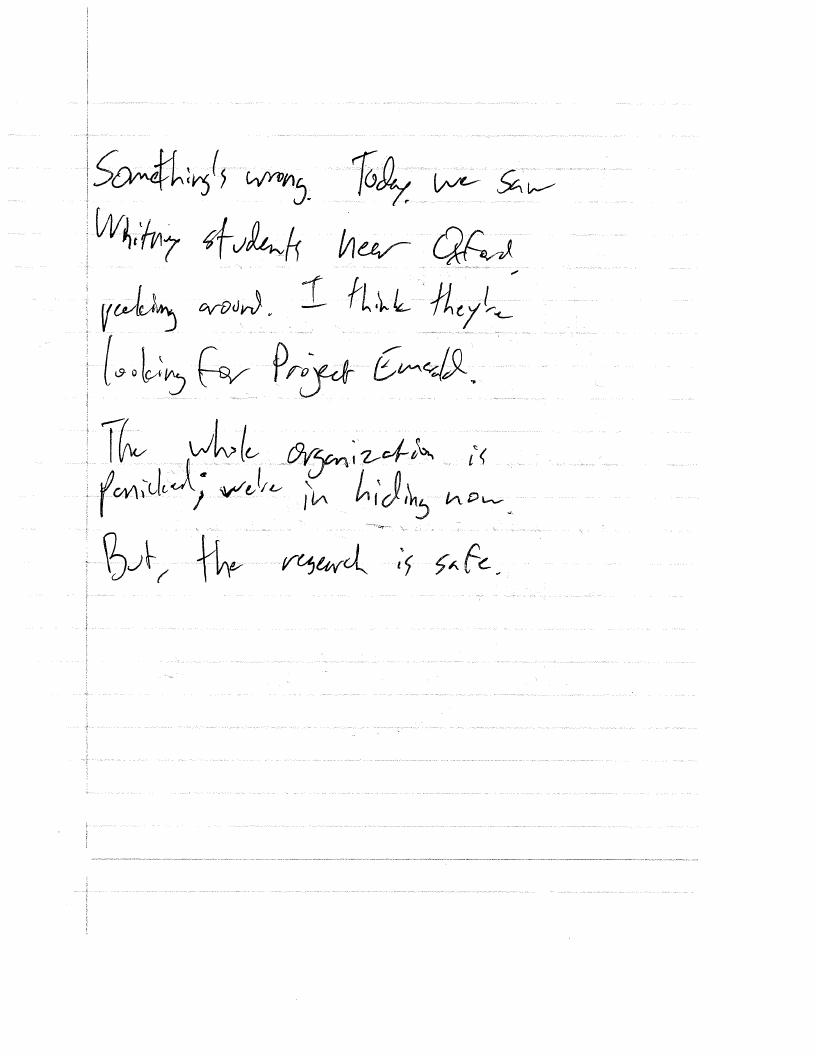 Something's wrong. Today, we saw
Whitney students near Oxford,
peeking around. I think they're
looking for Project Emerald.
The whole organization is
panicked; we're in hiding now.
But, the research is safe.